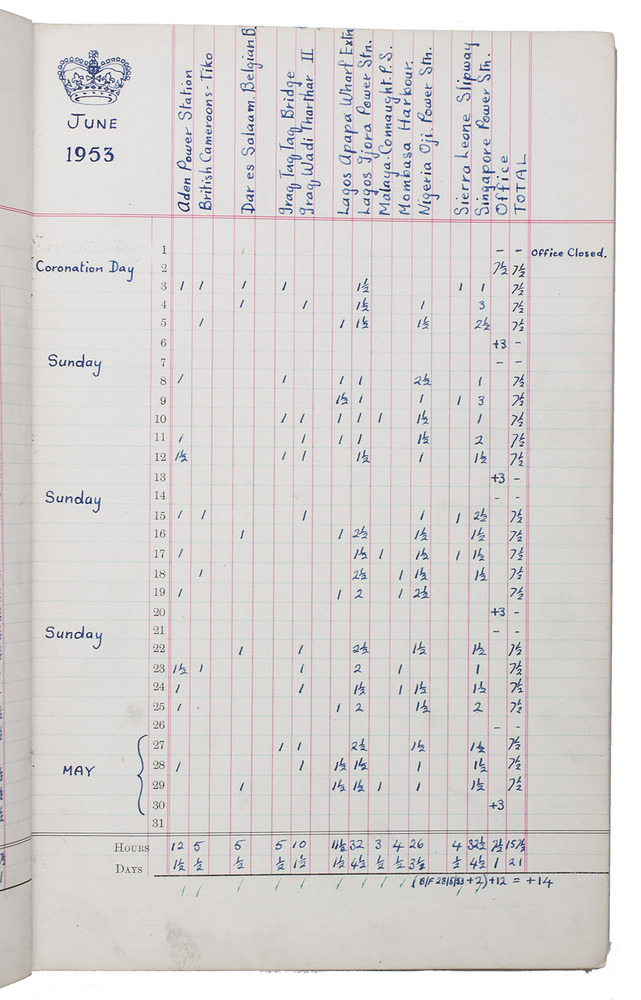 JUNE
1953
Aden Power Station
British Cameroons - Tiko
Dar es Salaam. Belgian B.
Iraq Taq Taq Bridge
Iraq Wadi Tharthar II
Lagos Apapa Wharf Extn
Lagos Ijora Power Stn.
Malaya-Connaught. P.S.
Mombasa Harbour.
Nigeria Oji. Power Stn.
Sierra Leone Slipway
Singapore Power Stn.
Office
TOTAL
1 - - Office Closed.
Coronation Day 2 7½ 7½
3 1 1 1 1 1½ 1 1 7½
4 1 1 1½ 1 3 7½
5 1 1 1½ 1½ 2½ 7½
6 +3 -
Sunday 7 - -
8 1 1 1 1 2½ 1 7½
9 1½ 1 1 1 3 7½
10 1 1 1 1 1 1½ 1 7½
11 1 1 1 1 1½ 2 7½
12 1½ 1 1 1½ 1 1½ 7½
13 +3 -
Sunday 14 - -
15 1 1 1 1 1 2½ 7½
16 1 1 2½ 1½ 1½ 7½
17 1 1½ 1 1½ 1 1½ 7½
18 1 2½ 1 1½ 1½ 7½
19 1 1 2 1 2½ 7½
20 +3 -
Sunday 21 - -
22 1 1 2½ 1½ 1½ 7½
23 1½ 1 1 2 1 1 7½
24 1 1 1½ 1 1½ 1½ 7½
25 1 1 2 1½ 2 7½
26 - -
27 1 1 2½ 1½ 1½ 7½
MAY 28 1 1 1½ 1½ 1 1½ 7½
29 1 1½ 1½ 1 1 1½ 7½
30 +3
31
HOURS 12 5 5 5 10 11½ 32 3 4 26 4 32½ 7½ 157½
DAYS 1½ ½ ½ ½ 1½ 1½ 4½ ½ ½ 3½ ½ 4½ 1 21
(B/F 28/5/53 +2) +12 = +14